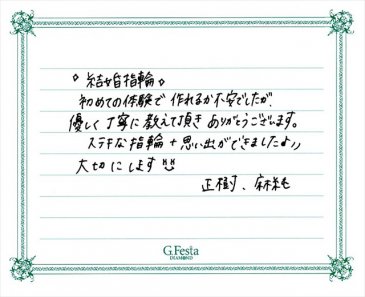 ◇結婚指輪◇
初めての体験で 作れるか不安でしたが、
優しく丁寧に教えて頂き ありがとうございます。
ステキな指輪+思い出ができましたよ〃
大切にします
正樹、麻純
G.Festa
DIAMOND